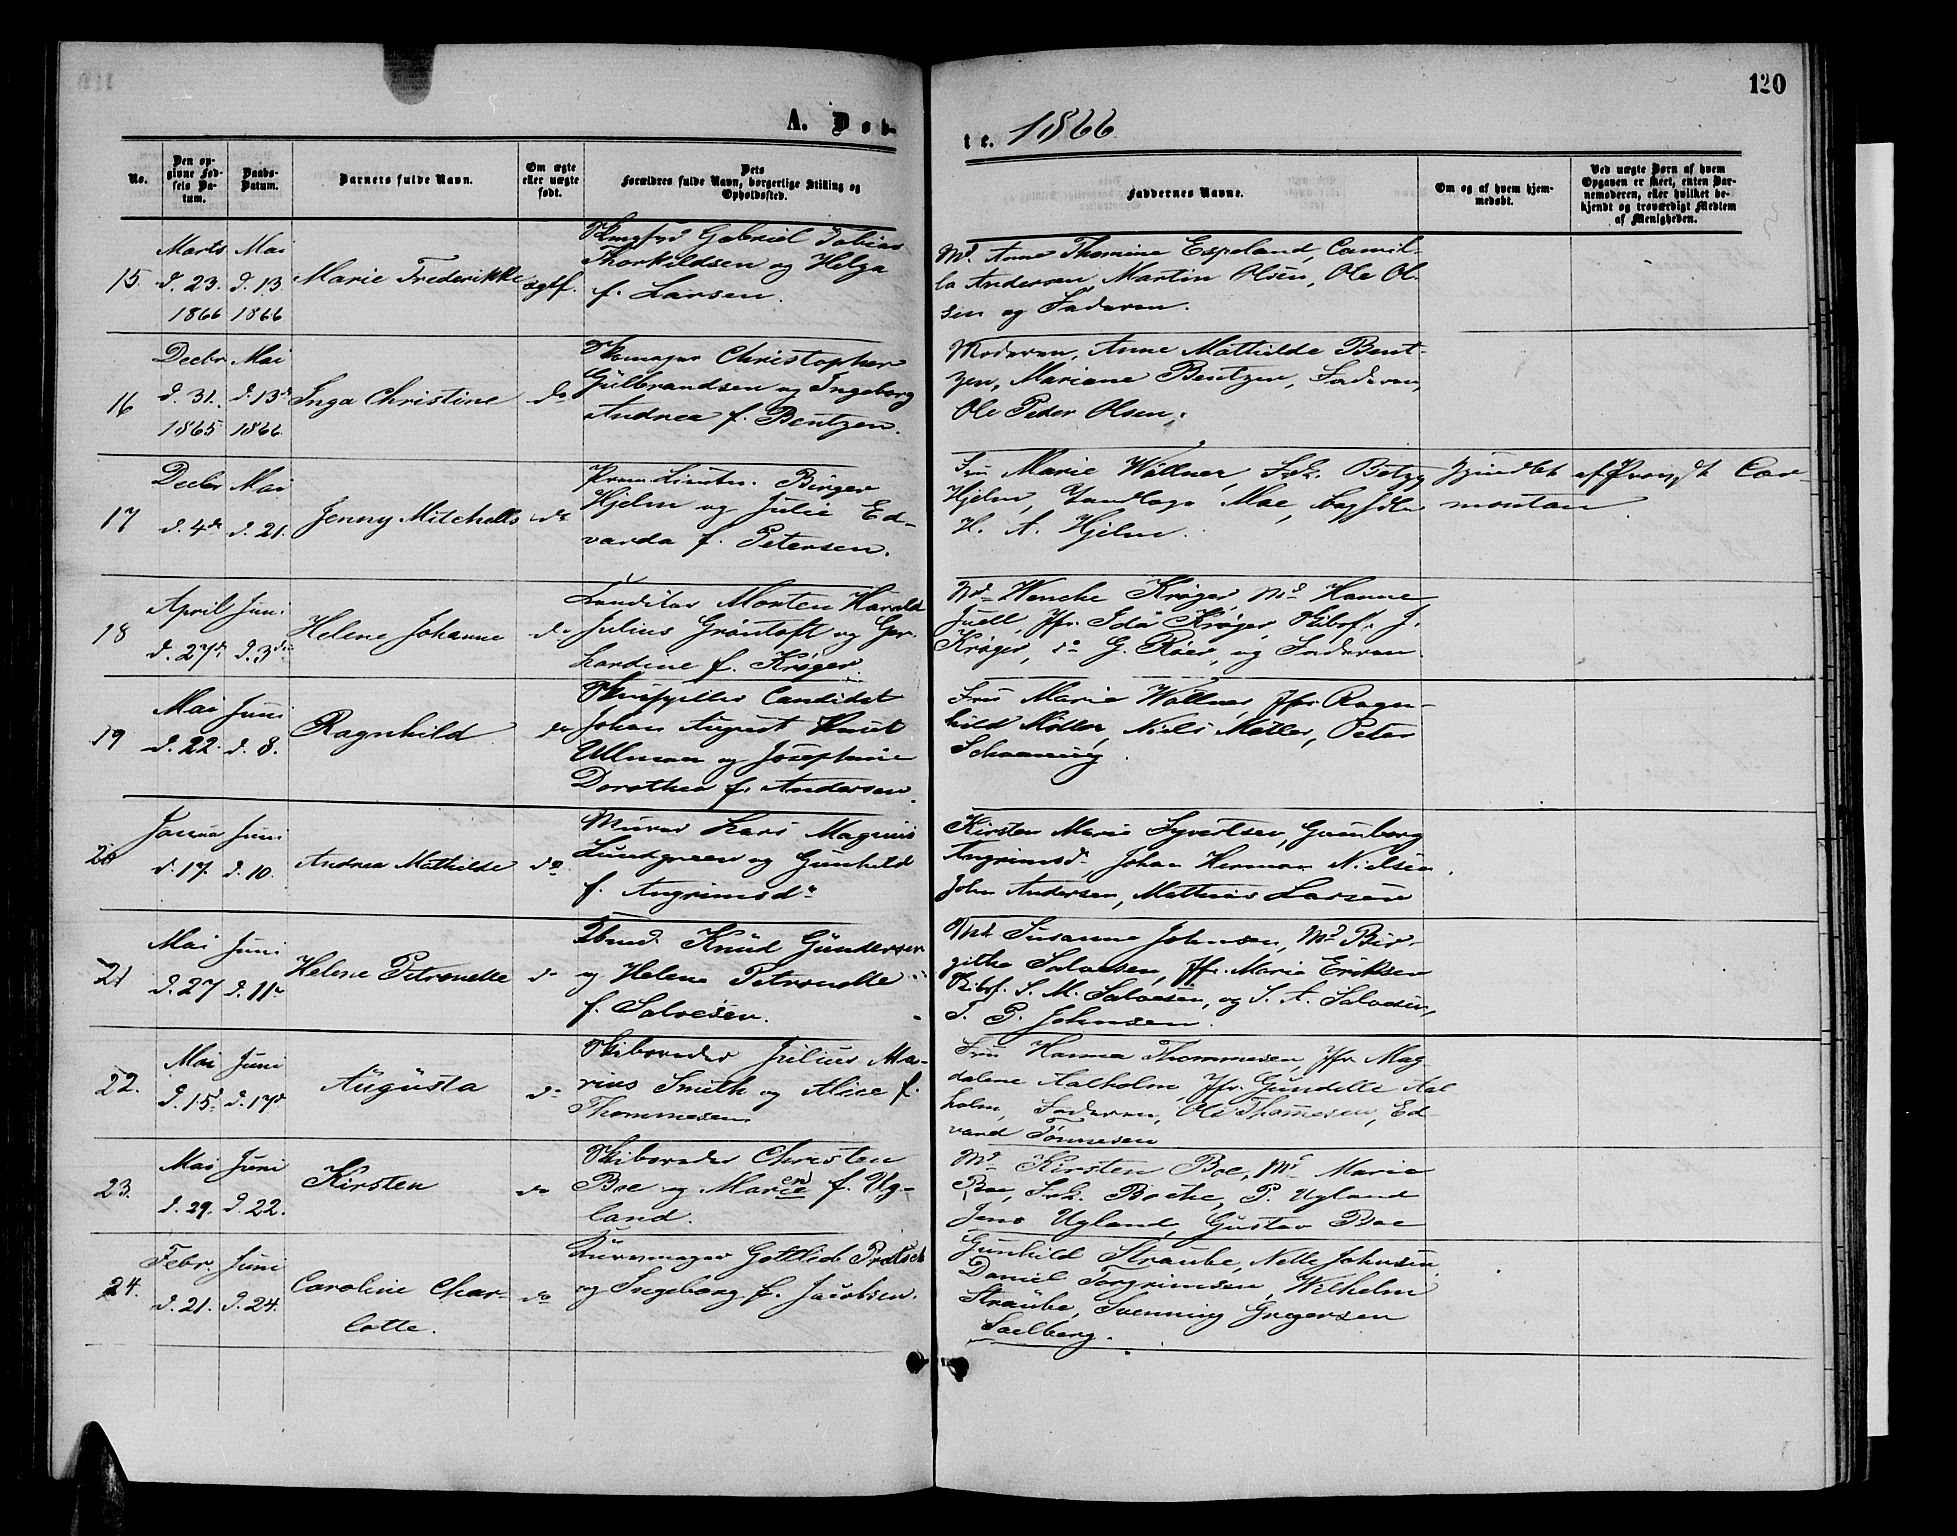 120
A. Døb-
te. 1866
No.
Den op-
givne Fød-
sels Da-
tum.
Daabs-
Datum.
Barnets fulde Navn.
Om ægte
eller uægte
født.
Dets
Forældres fulde Navn, borgerlige Stilling og
Opholdssted.
Faddernes Navne.
Om og af hvem hjem-
medøbt.
Ved uægte Børn af hvem
Opgaven er skeet, enten Bar-
nemoderen, eller hvilket be-
kjendt og troværdigt Medlem
af Menigheden.
15.
Marts
d. 23.
1866
Mai
d. 13.
1866
Marie Frederikke
ægtf.
Gabriel Tobias
Thorkildsen og Helga
f. Larsen.
Md. Anne Thomine Espeland, Camil-
la Andersen, Martin Olsen, Ole Ol-
sen og Faderen.
16
Decbr
d. 31.
1865
Mai
d. 13de
1866.
Inga Christine
do
Skomager Christopher
Gulbrandsen og Ingeborg
Andrea f. Bentzen.
Moderen, Anne Mathilde Bent-
zen, Mariane Bentzen, Faderen,
Ole Peder Olsen.
17
Decbr
d. 4de
Mai
d. 21.
Jenny Mitchells
do
Birger
Hjelm og Julie Ed-
varda f. Petersen.
Fru Marie Wallner, Frk. Betzy
Hjelm, Moe,
H. A. Hjelm.
af Car-
montan
18
April
d. 27de
Juni
d. 3die
Helene Johanne
do
Conditor Morten Harald
Julius Grøntoft og Ger-
hardine f. Krøger.
Md Wenche Krøger, Md Hanne
Juell, Jfr. Ida Krøger, Skibsf. J.
Krøger, do G. Roer, og Faderen.
19
Mai
d. 22.
Juni
d. 8.
Ragnhild
do
Candidat
Johan August Knut
Ullman og Josephine
Dorothea f. Andersen.
Fru Marie Wallner, Jfr. Ragn-
hild Møller, Niels Møller, Peter
Schanning.
20
Januar
d. 17.
Juni
d. 10.
Andrea Mathilde
do
Murer Lars Magnus
Lundgreen og Gunhild
f. Angrimsdr
Kirsten Marie Syvertsen, Gunborg
Angrimsd., Johan Herman Nielsen,
John Andersen, Mathias Larsen
21
Mai
d. 27
Juni
d. 11te
Helene Petronelle
do
Knud Gundersen
og Helene Petronelle
f. Salvesen.
Md Susanne Johnsen, Md Bir-
githe Salvesen, Jfr. Marie Eriksen
Skibsf. S. M. Salvesen, og S. A. Salvesen,
T. P. Johnsen.
22.
Mai
d. 15d
Juni
d. 17d
Augusta
do
Skibsreder Julius Ma-
rius Smith og Alice f.
Thommesen
Fru Hanna Thommesen, Jfr. Mag-
dalene Aalholm, Jfr. Gundelle Aal-
holm, Faderen, Ole Thomesen, Ed-
vard Tønnesen
23.
Mai
d. 29.
Juni
d. 22.
Kirsten
do
Skibsreder Christen
Boe og Maren f. Ug-
land.
Md Kirsten Boe, Md Marie
Boe, Frk. Boche, P. Ugland
Jens Ugland, Gustav Boe
24.
Febr.
d. 21.
Juni
d. 24.
Caroline Char-
lotte.
do
Kurvmager Gottlieb Pretsch
og Ingeborg f. Jacobsen.
Gunhild Straube, Nelle Johnsen,
Daniel Torgrimsen, Wilhelm
Straube, Svenning Gregersen
Solberg.